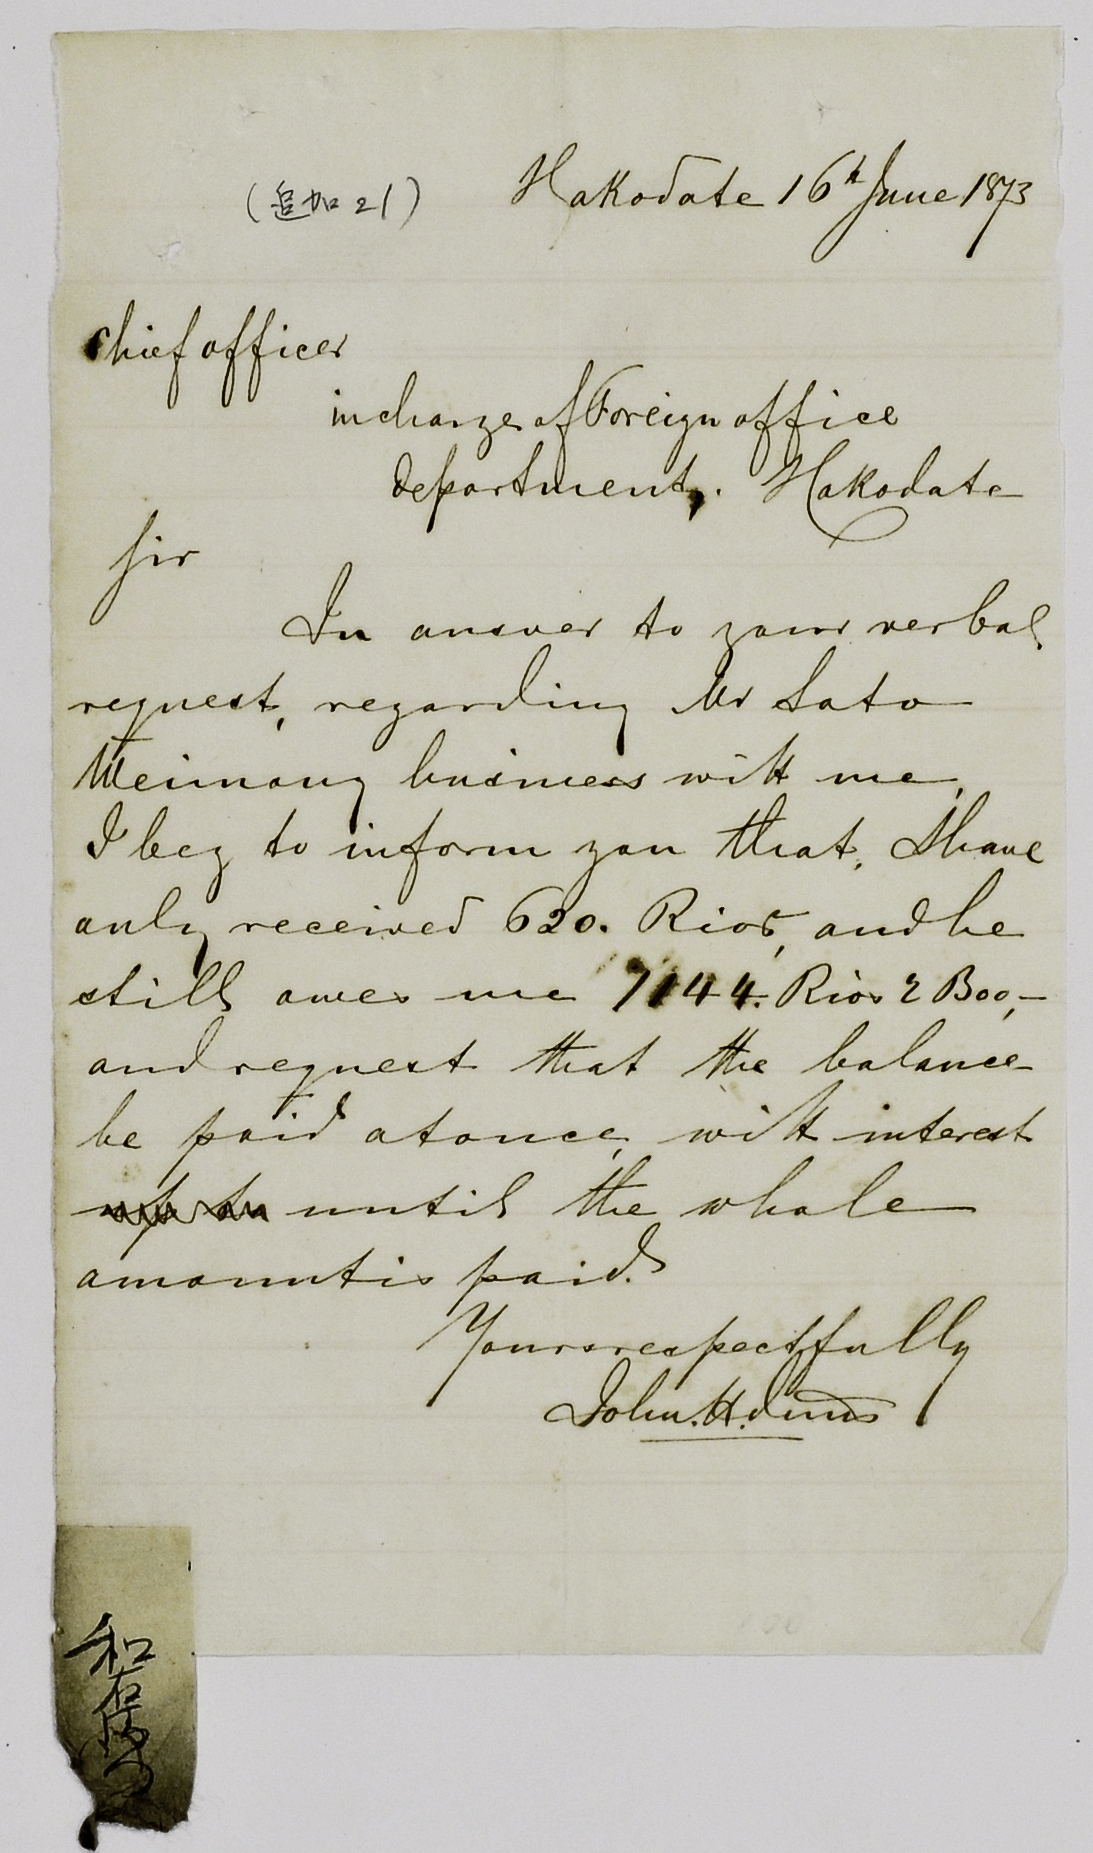 (追加21)
Hakodate 16th June 1873
Chief officer
in charge of Foreign office
department,. Hakodate
Sir
In answer to your verbal
request, regarding Mr Sato
business with me,
I beg to inform you that, I have
only received 620. Rios, and he
still owes me 7144. Rios 2 Boo,—
and request that the balance
be paid at once, with interest
up to until the whole
amount is paid.
Yours respectfully
John. H.
和